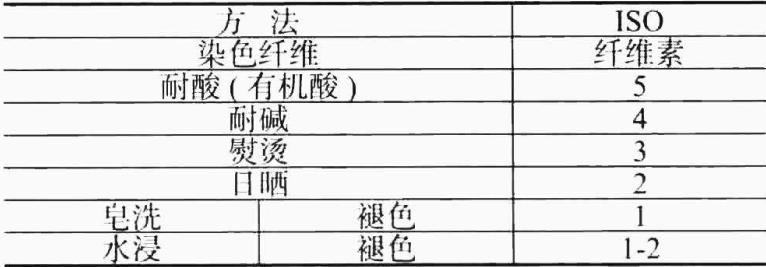 方 法 ISO
染色纤维 纤维素
耐酸(有机酸) 5
耐碱 4
熨烫 3
日晒 2
皂洗 褪色 1
水浸 褪色 1-2